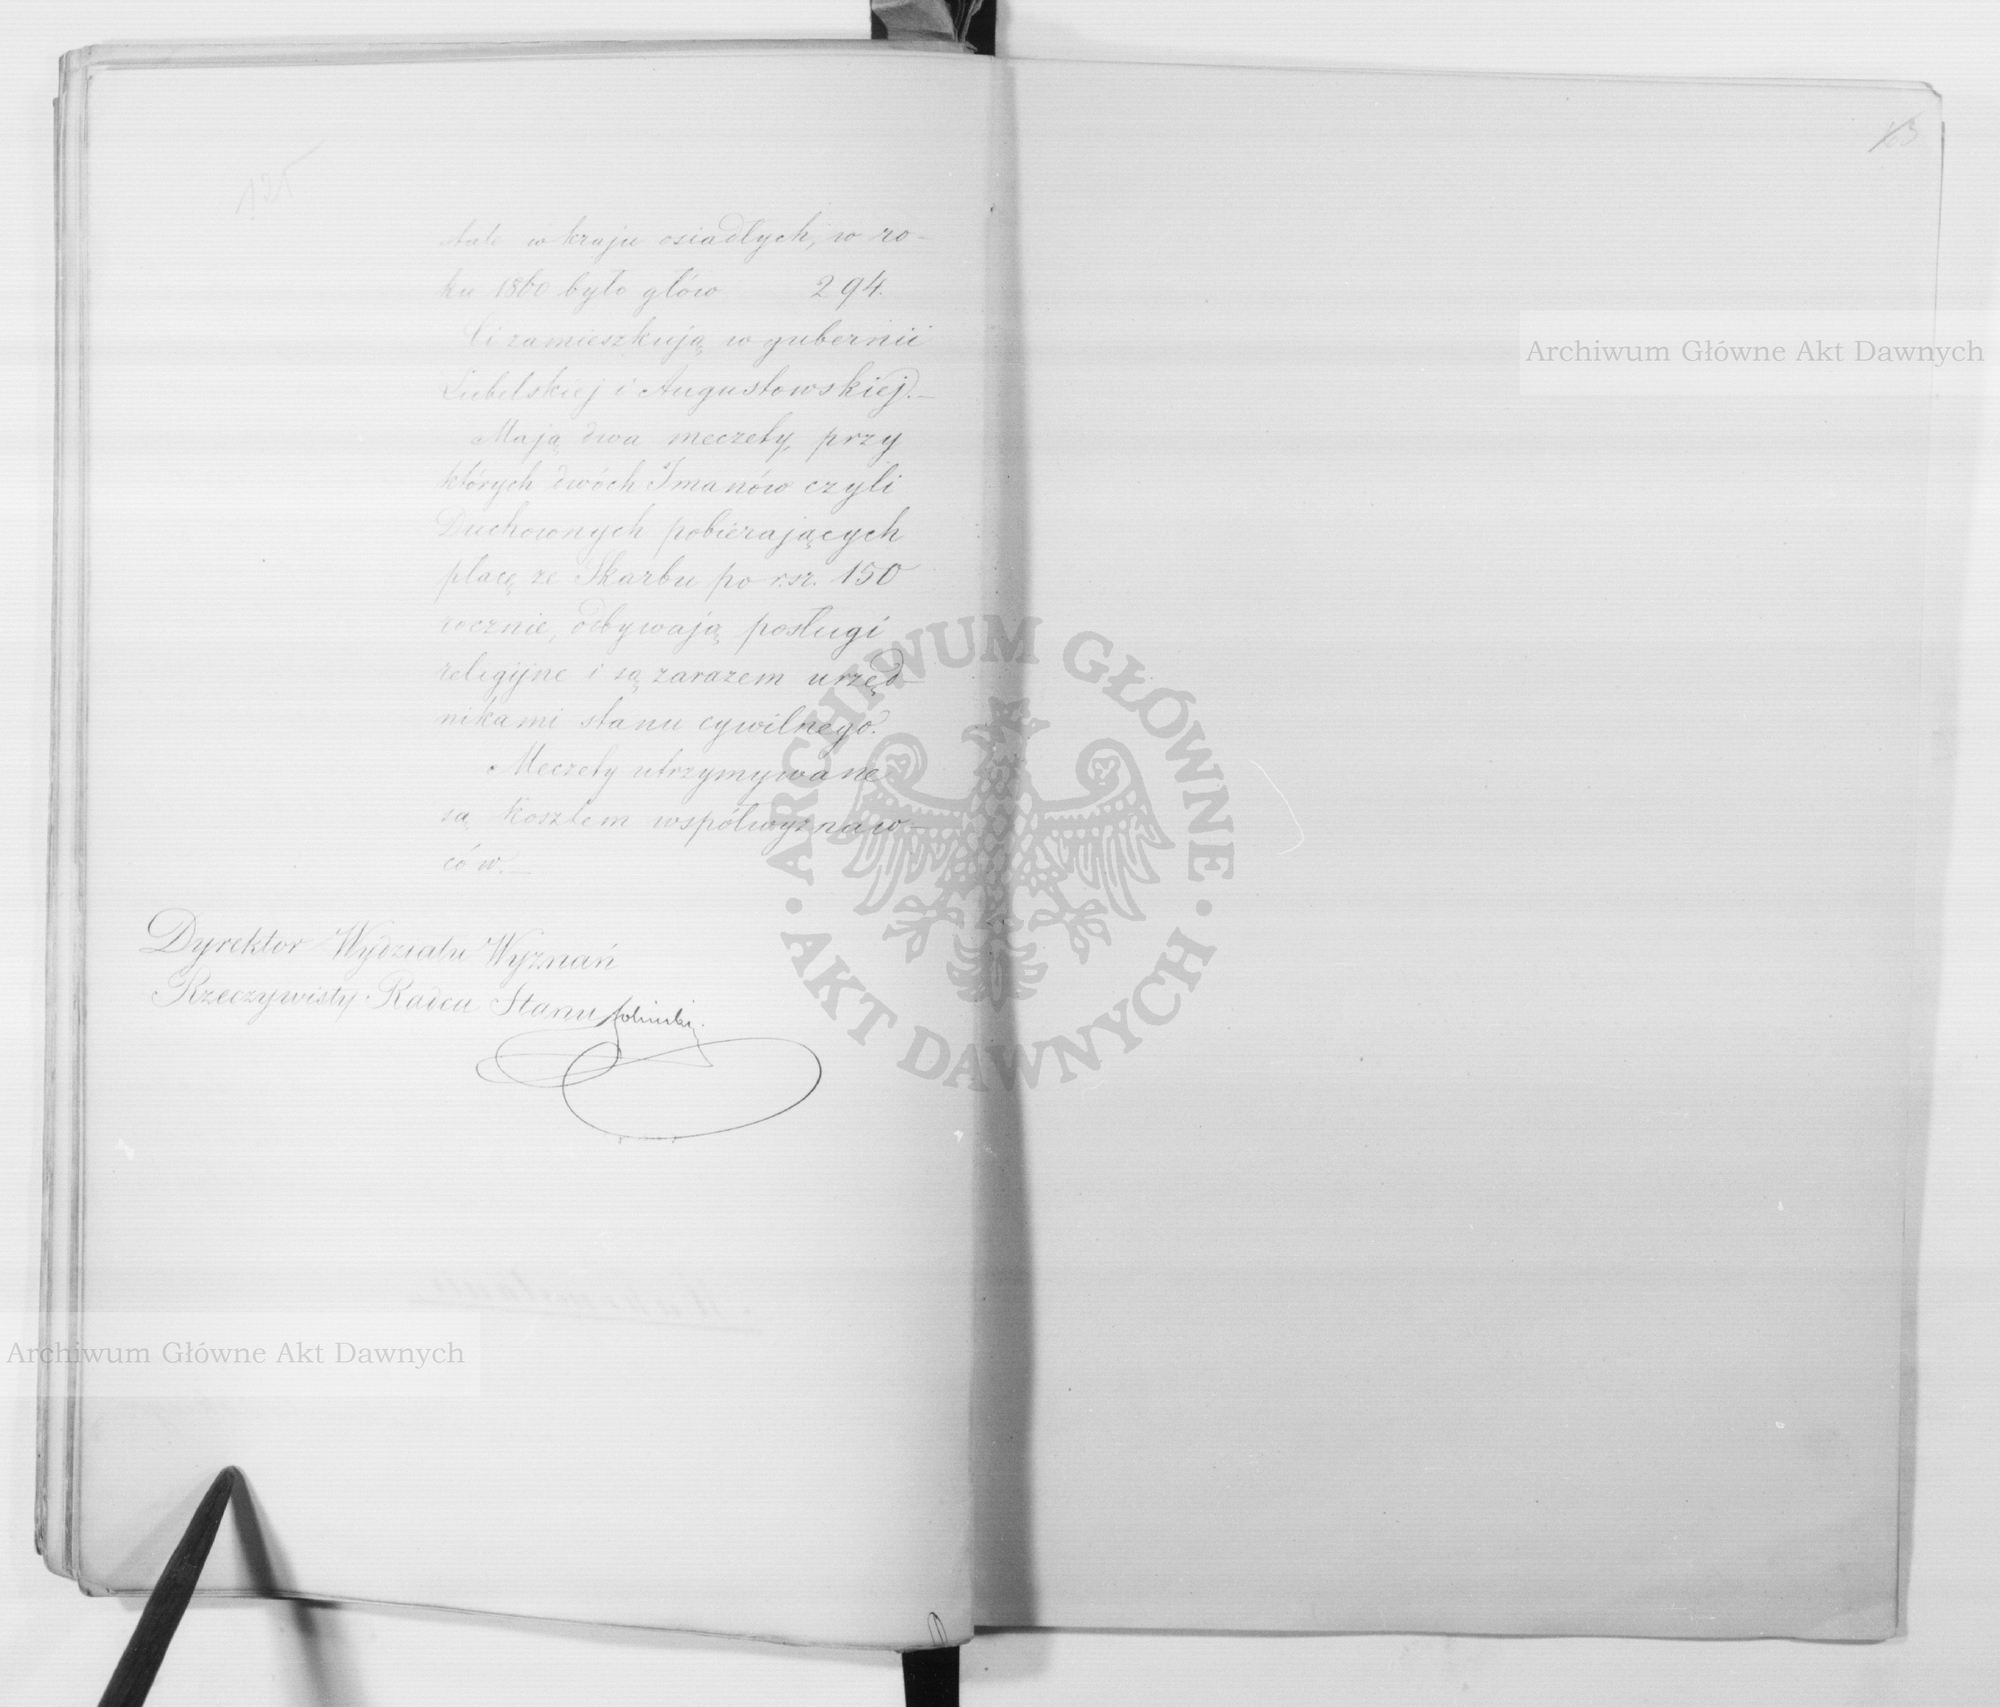 125
stale w kraju osiadłych, w ro-
ku 1860 było głów 294.
Ci zamieszkują w gubernii
Lubelskiej i Augustowskiej.-
Mają dwa meczety, przy
których dwóch Imanów czyli
Duchownych pobierających
płacę ze Skarbu po r.sr. 150
rocznie, odbywają posługi
religijne i są zarazem urzęd-
nikami stanu cywilnego.
Meczety utrzymywane
są kosztem współwyznaw-
ców.-
Dyrektor Wydziału Wyznań
Rzeczywisty Radca Stanu
Archiwum Główne Akt Dawnych
Archiwum Główne Akt Dawnych
ARCHIWUM GŁÓWNE
AKT DAWNYCH